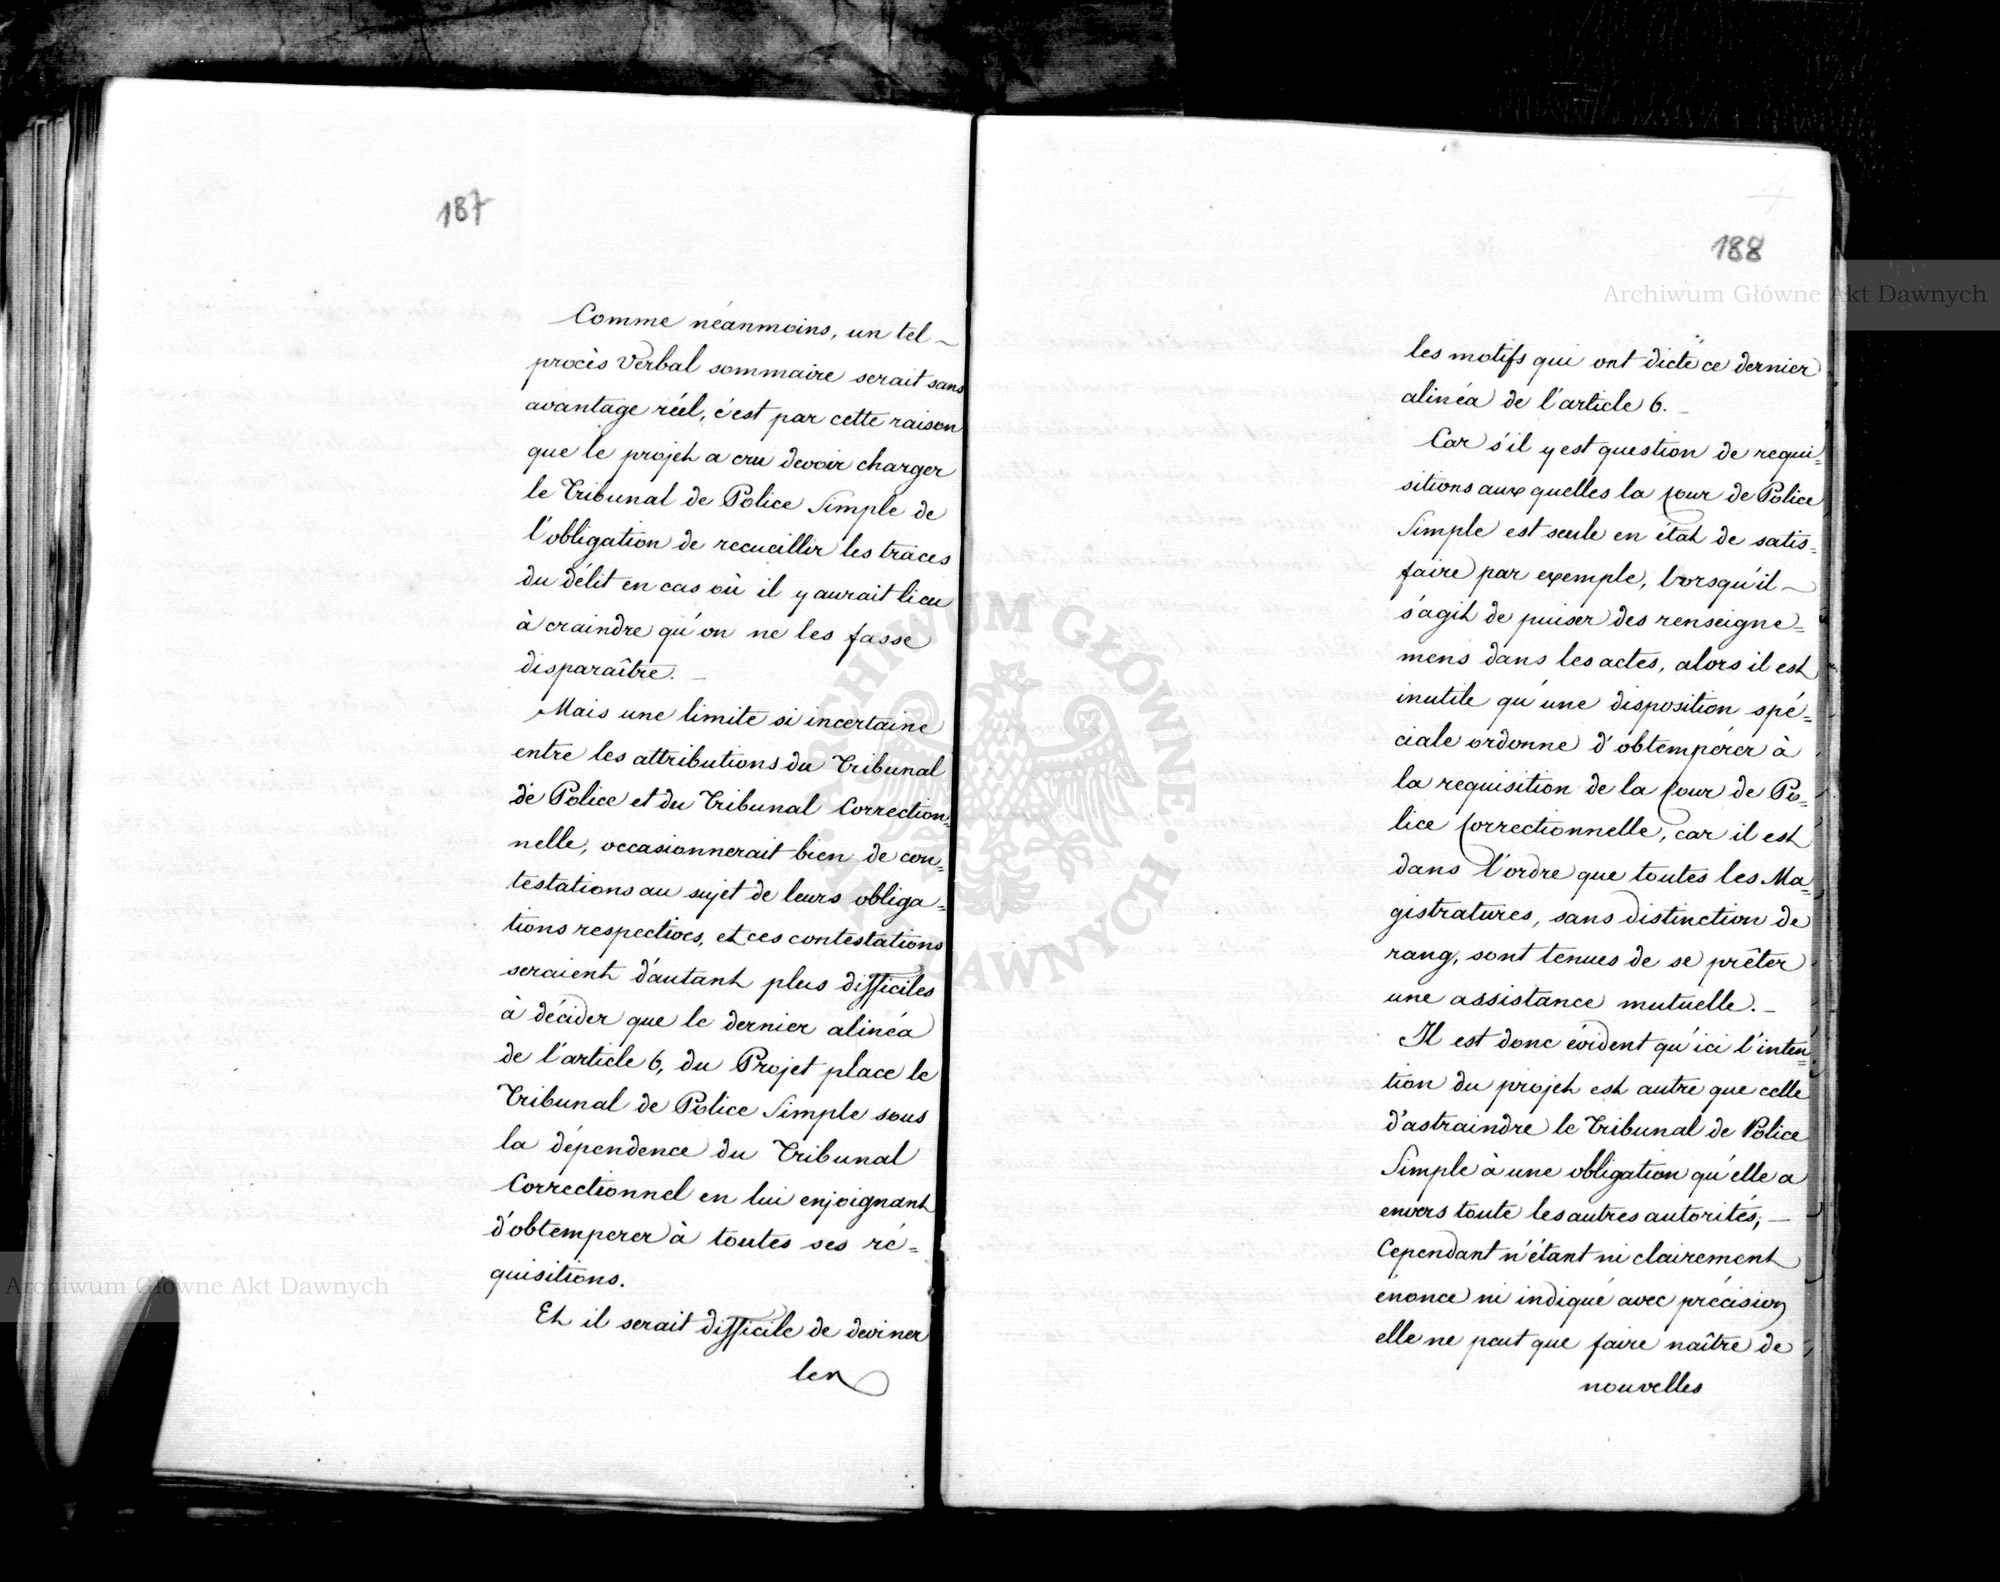 187
Comme néanmoins, un tel
procès Verbal sommaire serait sans
avantage réel, c'est par cette raison
que le projet a cru devoir charger
le Tribunal de Police Simple de
l'obligation de recueillir les traces
du délit en cas où il y aurait lieu
à craindre qu'on ne les fasse
disparaître.
Mais une limite si incertaine
entre les attributions du Tribunal
de Police et du Tribunal Correction=
nelle, occasionnerait bien de con=
testations au sujet de leurs obliga=
tions respectives, et ces contestations
seraient d'autant plus difficiles
à décider que le dernier alinéa
de l'article 6, du Projet place le
Tribunal de Police Simple sous
la dépendence du Tribunal
Correctionnel en lui enjoignant
d'obtemperer à toutes ses ré=
quisitions.
Et il serait difficile de deviner
les
188
les motifs qui ont dicté ce dernier
alinéa de l'article 6.
Car s'il y est question de requi=
sitions aux quelles la Cour de Police
Simple est seule en état de satis=
faire par exemple, lorsqu'il
s'agit de puiser des renseigne=
mens dans les actes, alors il est
inutile qu'une disposition spé=
ciale ordonne d'obtempérer à
la requisition de la Cour de Po=
lice Correctionnelle, car il est
dans l'ordre que toutes les Ma=
gistratures, sans distinction de
rang, sont tenues de se prêter
une assistance mutuelle.
Il est donc évident qu'ici l'inten=
tion du projet est autre que celle
d'astraindre le Tribunal de Police
Simple à une obligation qu'elle a
envers toute les autres autorités;
Cependant n'étant ni clairement
énoncé ni indiqué avec précision
elle ne peut que faire naître de
nouvelles
Archiwum Główne Akt Dawnych
Archiwum Główne Akt Dawnych
ARCHIWUM GŁÓWNE AKT DAWNYCH